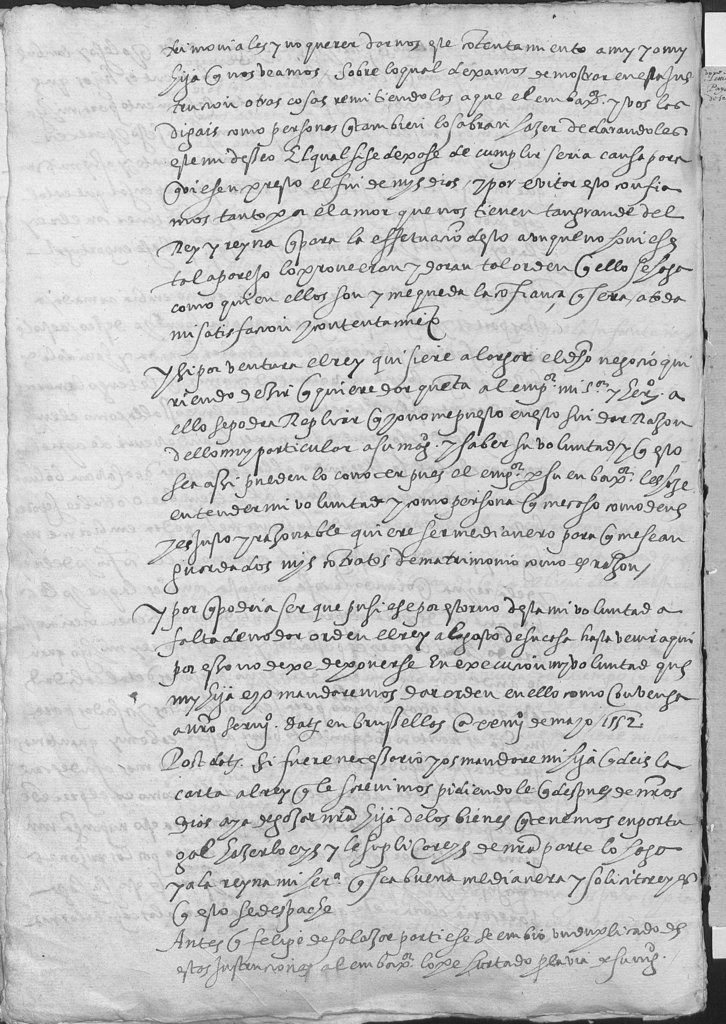 trimoniales y no querer darnos este contentamiento a my y a my
hija q̃ nos veamos. sobre lo qual dexamos de mostrar en esta ins
trucion otras cosas remitiendolos a que el embaxor y vos les
digais como personas q̃ tambien lo sabran hazer declarandoles
este mi desseo El qual si se dexase de cumplir seria causa para
q̃ viesen presto el fin de mys dias / y por evitar esto confia
mos tanto por el amor que nos tienen tan grande del
Rey y reyna q̃ para la effetuacion desto aunque no hoviese
tal aparejo lo proveeran y daran tal orden q̃ ello se haga
como quien ellos son y me queda la cõfiança q̃ sera a toda
mi satisfacion y contentamiẽto
Y si por ventura el rey quisiere alargar el dho negocio qui
riendo dezir q̃ quiere dar queta al empor mi sor y hero. a
ello se podra Replicar q̃ yo no me puesto en esto sin dar Razon
dello muy particular a su magd. y saber su voluntad y q̃ esto
sea assi pueden lo conocer pues el empor por su enbaxor les haze
entender mi voluntad y como persona q̃
y es justo y razonable quiere ser medianero para q̃ me sean
guardados mys cõtratos de matrimonio como es razon /
Y por q̃ podria ser que pusiese por estorvo desta mi voluntad a
falta de no dar orden el rey al gasto de su casa hasta venir aqui
por esso no dexe de ponerse En execucion my voluntad que
my hija e yo mandaremos dar orden en ello como cõvenga
a vro servio. dats en brussellas a de mayo 1552
Post dats. Si fuere necessario y os mandare mi hija q̃ deis la
carta al rey q̃ le screvimos pidiendole q̃ despues de nros
dias aya de gozar nra hija de los bienes q̃ tenemos en portu
gal hazerlo eys y le suplicareys de nra parte lo haga
y a la reyna mi sera. q̃ sea buena medianera y solicitareys
q̃ esto se despache
Antes q̃ felipe de salazar partiese se embio un duplicado de
estas Instruciones al embaxor lope hurtado por la via de su mgd.